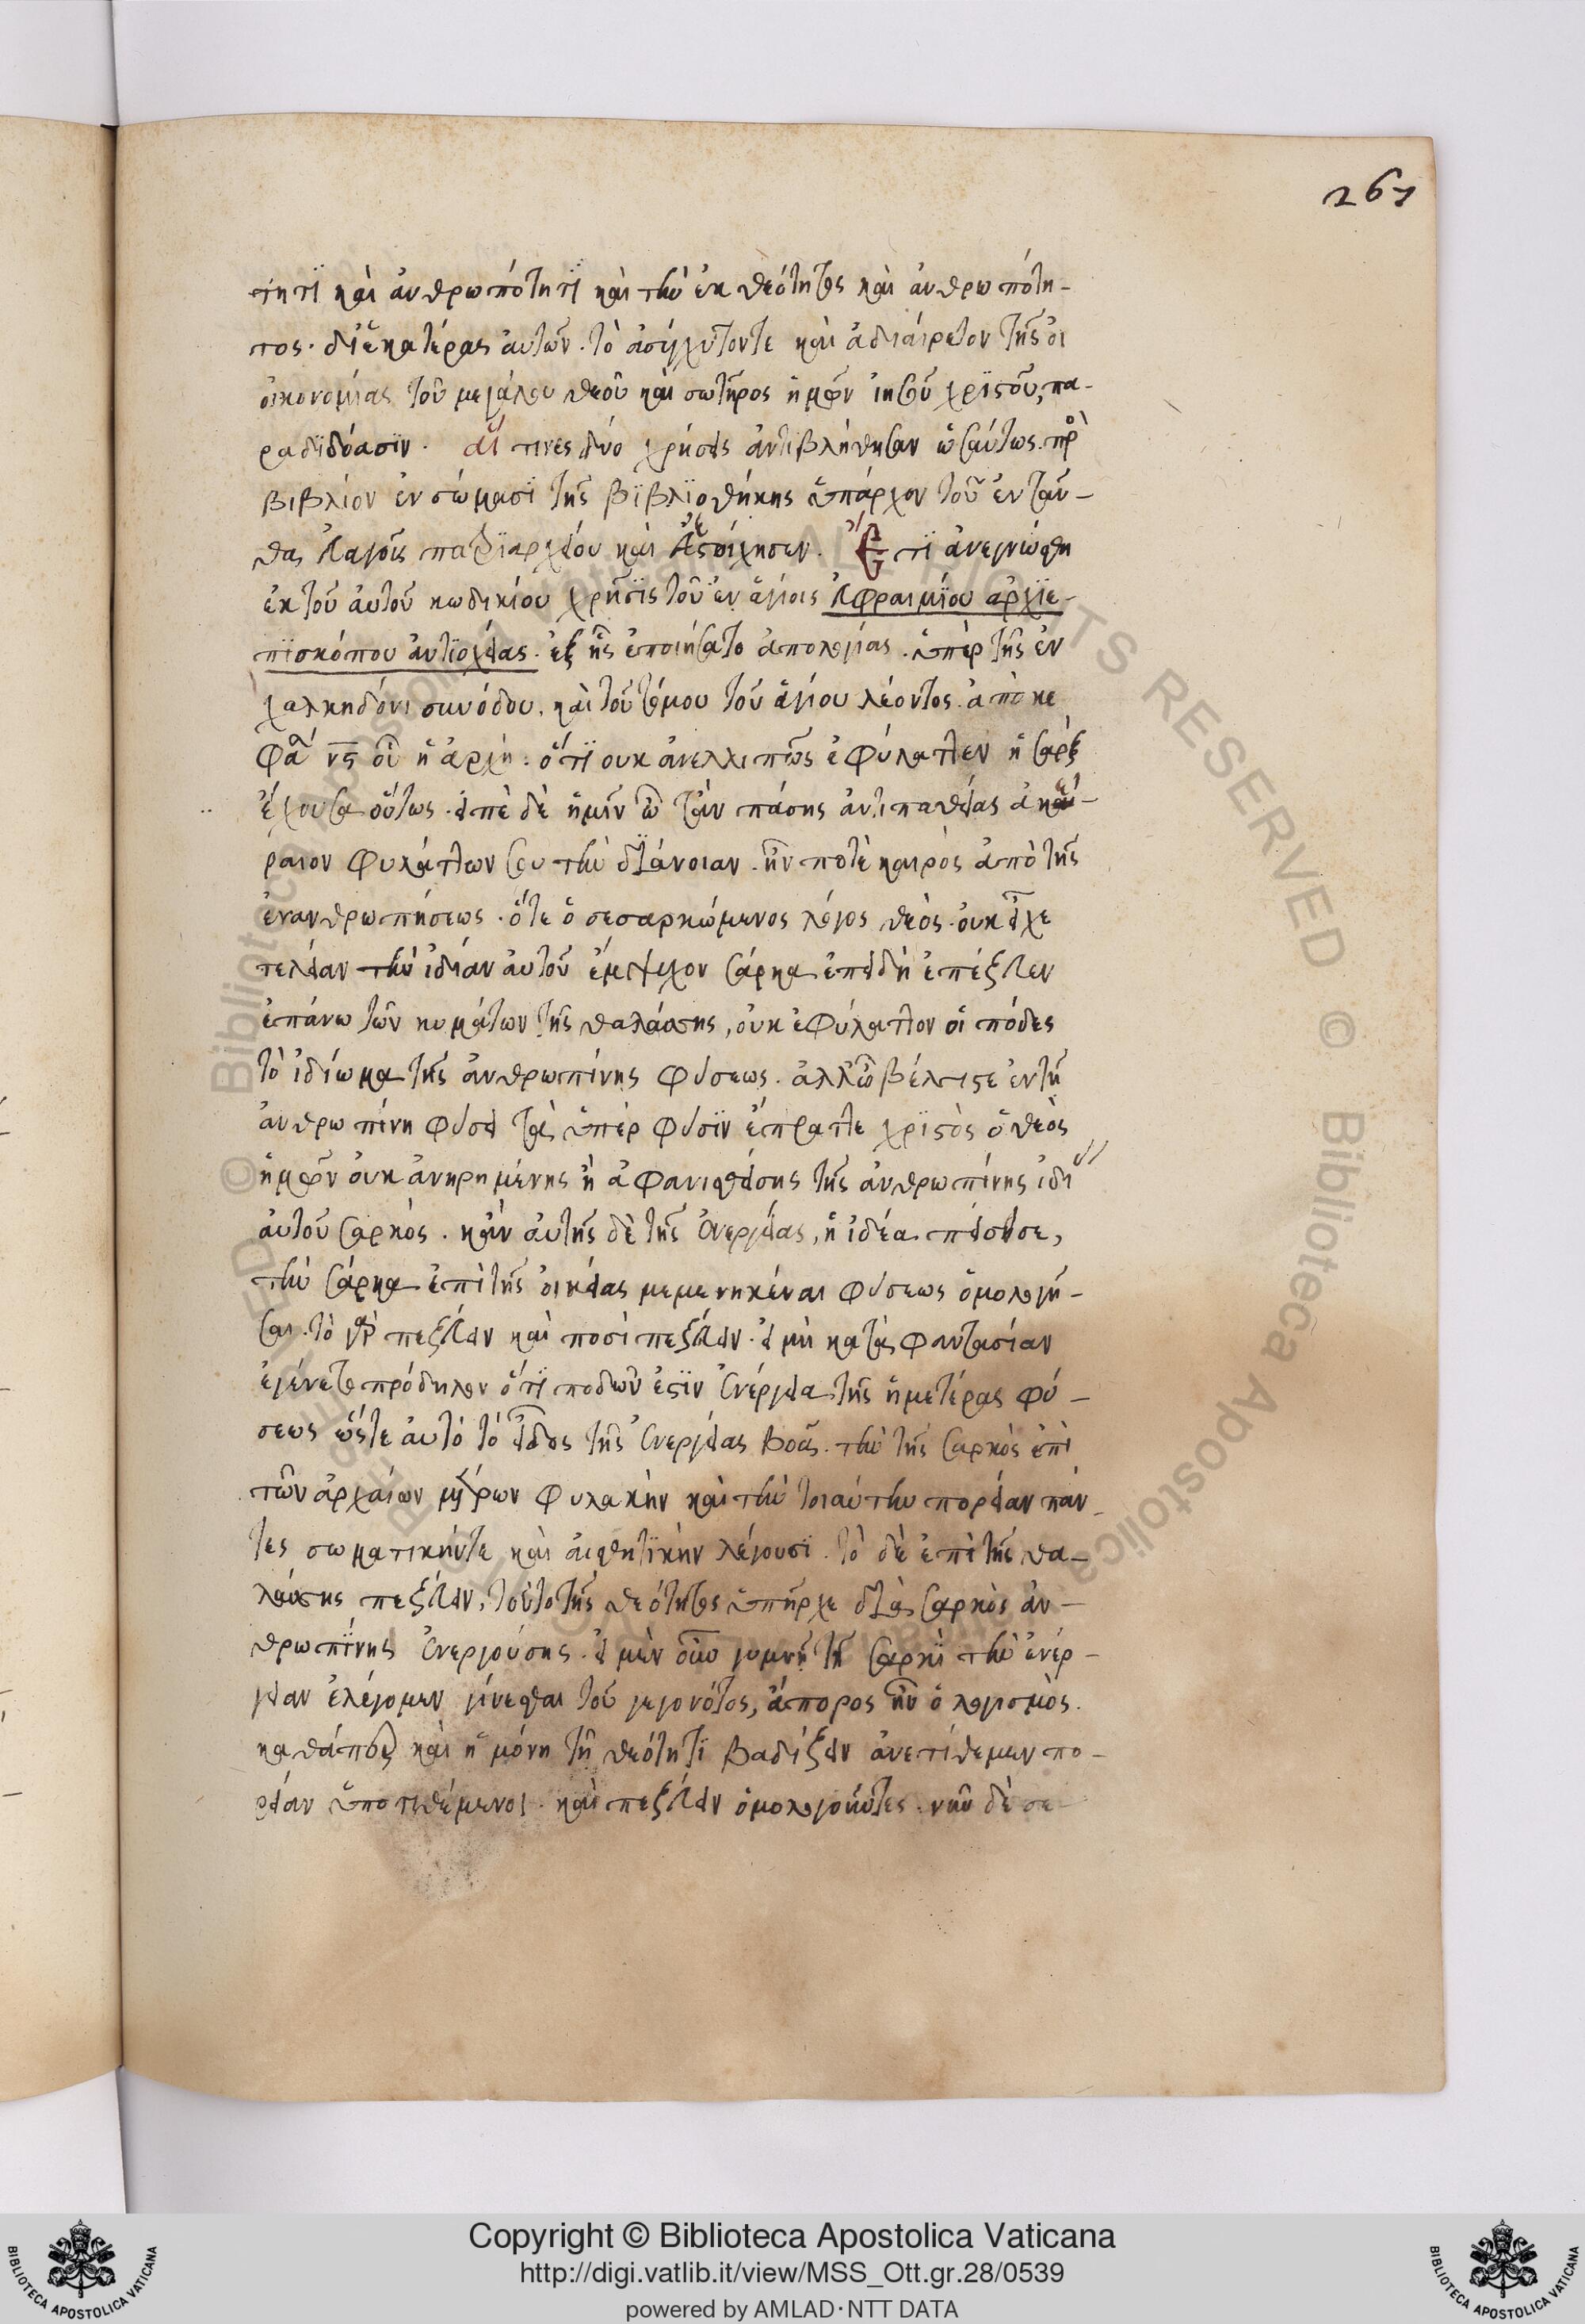 261
τητϊ καὶ ἀνθρωπότητϊ καὶ τὴν ἐκ θεότητος καὶ ἀνθρωπότη-
τος· δι ἑκατέρας ἀυτῶν. τὸ ἀσύγχυτόντε καὶ ἀδιάιρετον τῆς ὀι
οἰκονομίας τοῦ μεγάλου θεοῦ καὶ σωτῆρος ἡμῶν ἰησοῦ χρϊστοῦ, πα-
ραδϊδόασϊν. αἵ τινες δύο χρήσεις ἀντιβλήθησαν ὡσαύτως πρὸς
βιβλίον ἐν σώμασϊ τῆς βϊβλϊοθήκης ὑπάρχον τοῦ ἐνταῦ-
θα ἐυαγοῦς πατρϊαρχείου καὶ ἐστοίχησεν. ἔτϊ ἀνεγνώσθη
ἐκ τοῦ ἀυτοῦ κωδικίου χρῆσϊς τοῦ ἐν ἁγίοις ἐυφραιμϊου ἀρχϊε-
πϊσκόπου ἀντϊοχείας. ἐξ ἧς ἐποιήσατο ἀπολογίας. ὑπὲρ τῆς ἐν
χαλκηδόνι συνόδου. καὶ τοῦ τόμου τοῦ ἁγίου λέοντος. ἀπὸ κε
φαλ νϛ οὗ ἡ ἀρχή. ὅτϊ ουκ ἀνελλιπῶς ἐφύλαττεν ἡ σὰρξ
ἔχουσα οὕτως. ἐιπὲ δὲ ἡμῖν ὦ τᾶν πάσης ἀντιπαθείας ἀκαί-
ραιον φυλάττων σου τὴν διάνοιαν. ἦν ποτὲ καιρὸς ἀπὸ τῆς
ἐνανθρωπήσεως. ὅτε ὁ σεσαρκώμενος λόγος θεὸς. ὀυκ εἶχε
τελείαν τὴν ἰδίαν ἀυτοῦ ἔμψυχον σάρκα ἐπειδὴ ἐπέζευεν
ἐπάνω τῶν κυμάτων τῆς θαλάσσης, ὀυκ ἐφύλαττον οἱ πόδες
τὸ ἰδίωμα τῆς ἀνθρωπίνης φύσεως. ἀλλ ὦ βέλτιστε ἐν τῆ
ἀνθρωπίνη φύσει τὰ ὑπὲρ φύσϊν ἔπραττε χρϊστὸς ὁ θεὸς
ἡμῶν ὀυκ ἀνηρημένης ἢ ἀφανισθείσης τῆς ἀνθρωπίνης ἰδι
ἀυτοῦ σαρκὸς. κἂν ἀυτῆς δὲ τῆς ἐνεργείας, ἡ ἰδέα πείσειε σε,
τὴν σάρκα ἐπὶ τῆς ὀικείας μεμενηκέναι φύσεως ὁμολογῆ-
σαι. τὸ γὰρ πεζεύειν καὶ ποσὶ πεζεύειν. ἐι μὴ κατὰ φαντασίαν
ἐγένετο πρόδηλον ὅτϊ ποδῶν ἐστϊν ἐνέργεια τῆς ἡμετέρας φύ-
σεως ὥστε ἀυτό τὸ εἶδος τῆς ἐνεργείας βοᾶ. τὴν τῆς σαρκὸς ἐπὶ
τῶν ἀρχαίων μέτρων φυλακὴν καὶ τὴν τοιαύτην πορείαν πάν-
τες σωματικήντε καὶ ἀισθητϊκὴν λέγουσϊ. τὸ δὲ ἐπὶ τῆς θα-
λάσσης πεζεύειν, τοῦτο τῆς θεότητος ὑπῆρχε διὰ σαρκὸς ἀν-
θρωπϊνης ἐνεργούσης. ἐι μὲν οὖν γυμνῆ τῆ σαρκϊ τὴν ἐνέρ-
γειαν ἐλέγομεν γίνεσθαι τοῦ γεγονότος, ἄπορος ἦν ὁ λογισμὸς.
καθάπερ καὶ ἡ μόνη τῆ θεότητϊ βαδίζειν ἀνετίθεμεν πο-
ρείαν ὑποτιθέμενοι. καὶ πεζεύειν ὁμολογοῦντες. νῦν δὲ σε-
Copyright © Biblioteca Apostolica Vaticana
http://digi.vatlib.it/view/MSS_Ott.gr.28/0539
powered by AMLAD·NTT DATA